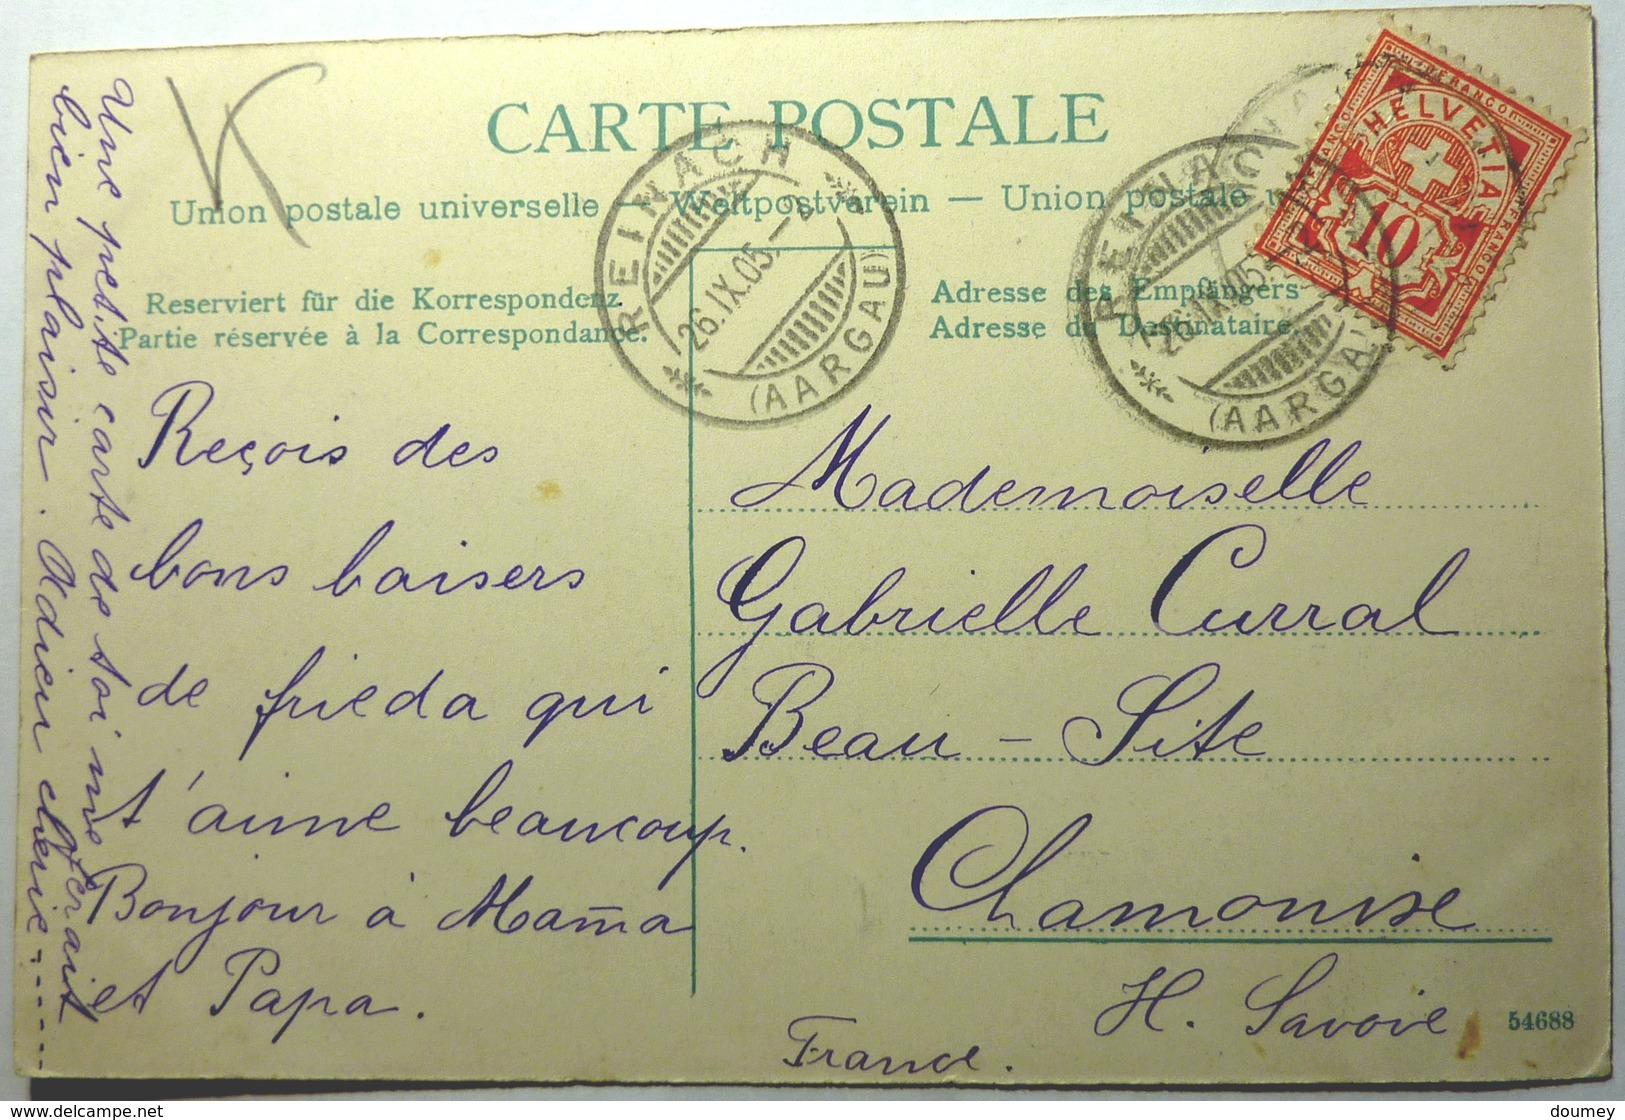 CARTE POSTALE
Union postale universelle — Weltpostverein — Union postale u
Reserviert für die Korrespondenz.
Partie réservée à la Correspondance.
Adresse des Empfängers
Adresse du Destinataire.
REINACH
26.IX.05.
(AARGAU)
REINACH
26.IX.05.
(AARGAU)
FRANCO
HELVETIA
10
Reçois des
bons baisers
de frieda qui
t'aime beaucoup.
Bonjour à Mama
et Papa.
Une petite carte de toi me ferait
bien plaisir. Adieu cherie
Mademoiselle
Gabrielle Curral
Beau-Site
Chamonise
H. Savoie
France.
54688
delcampe.net
doumey